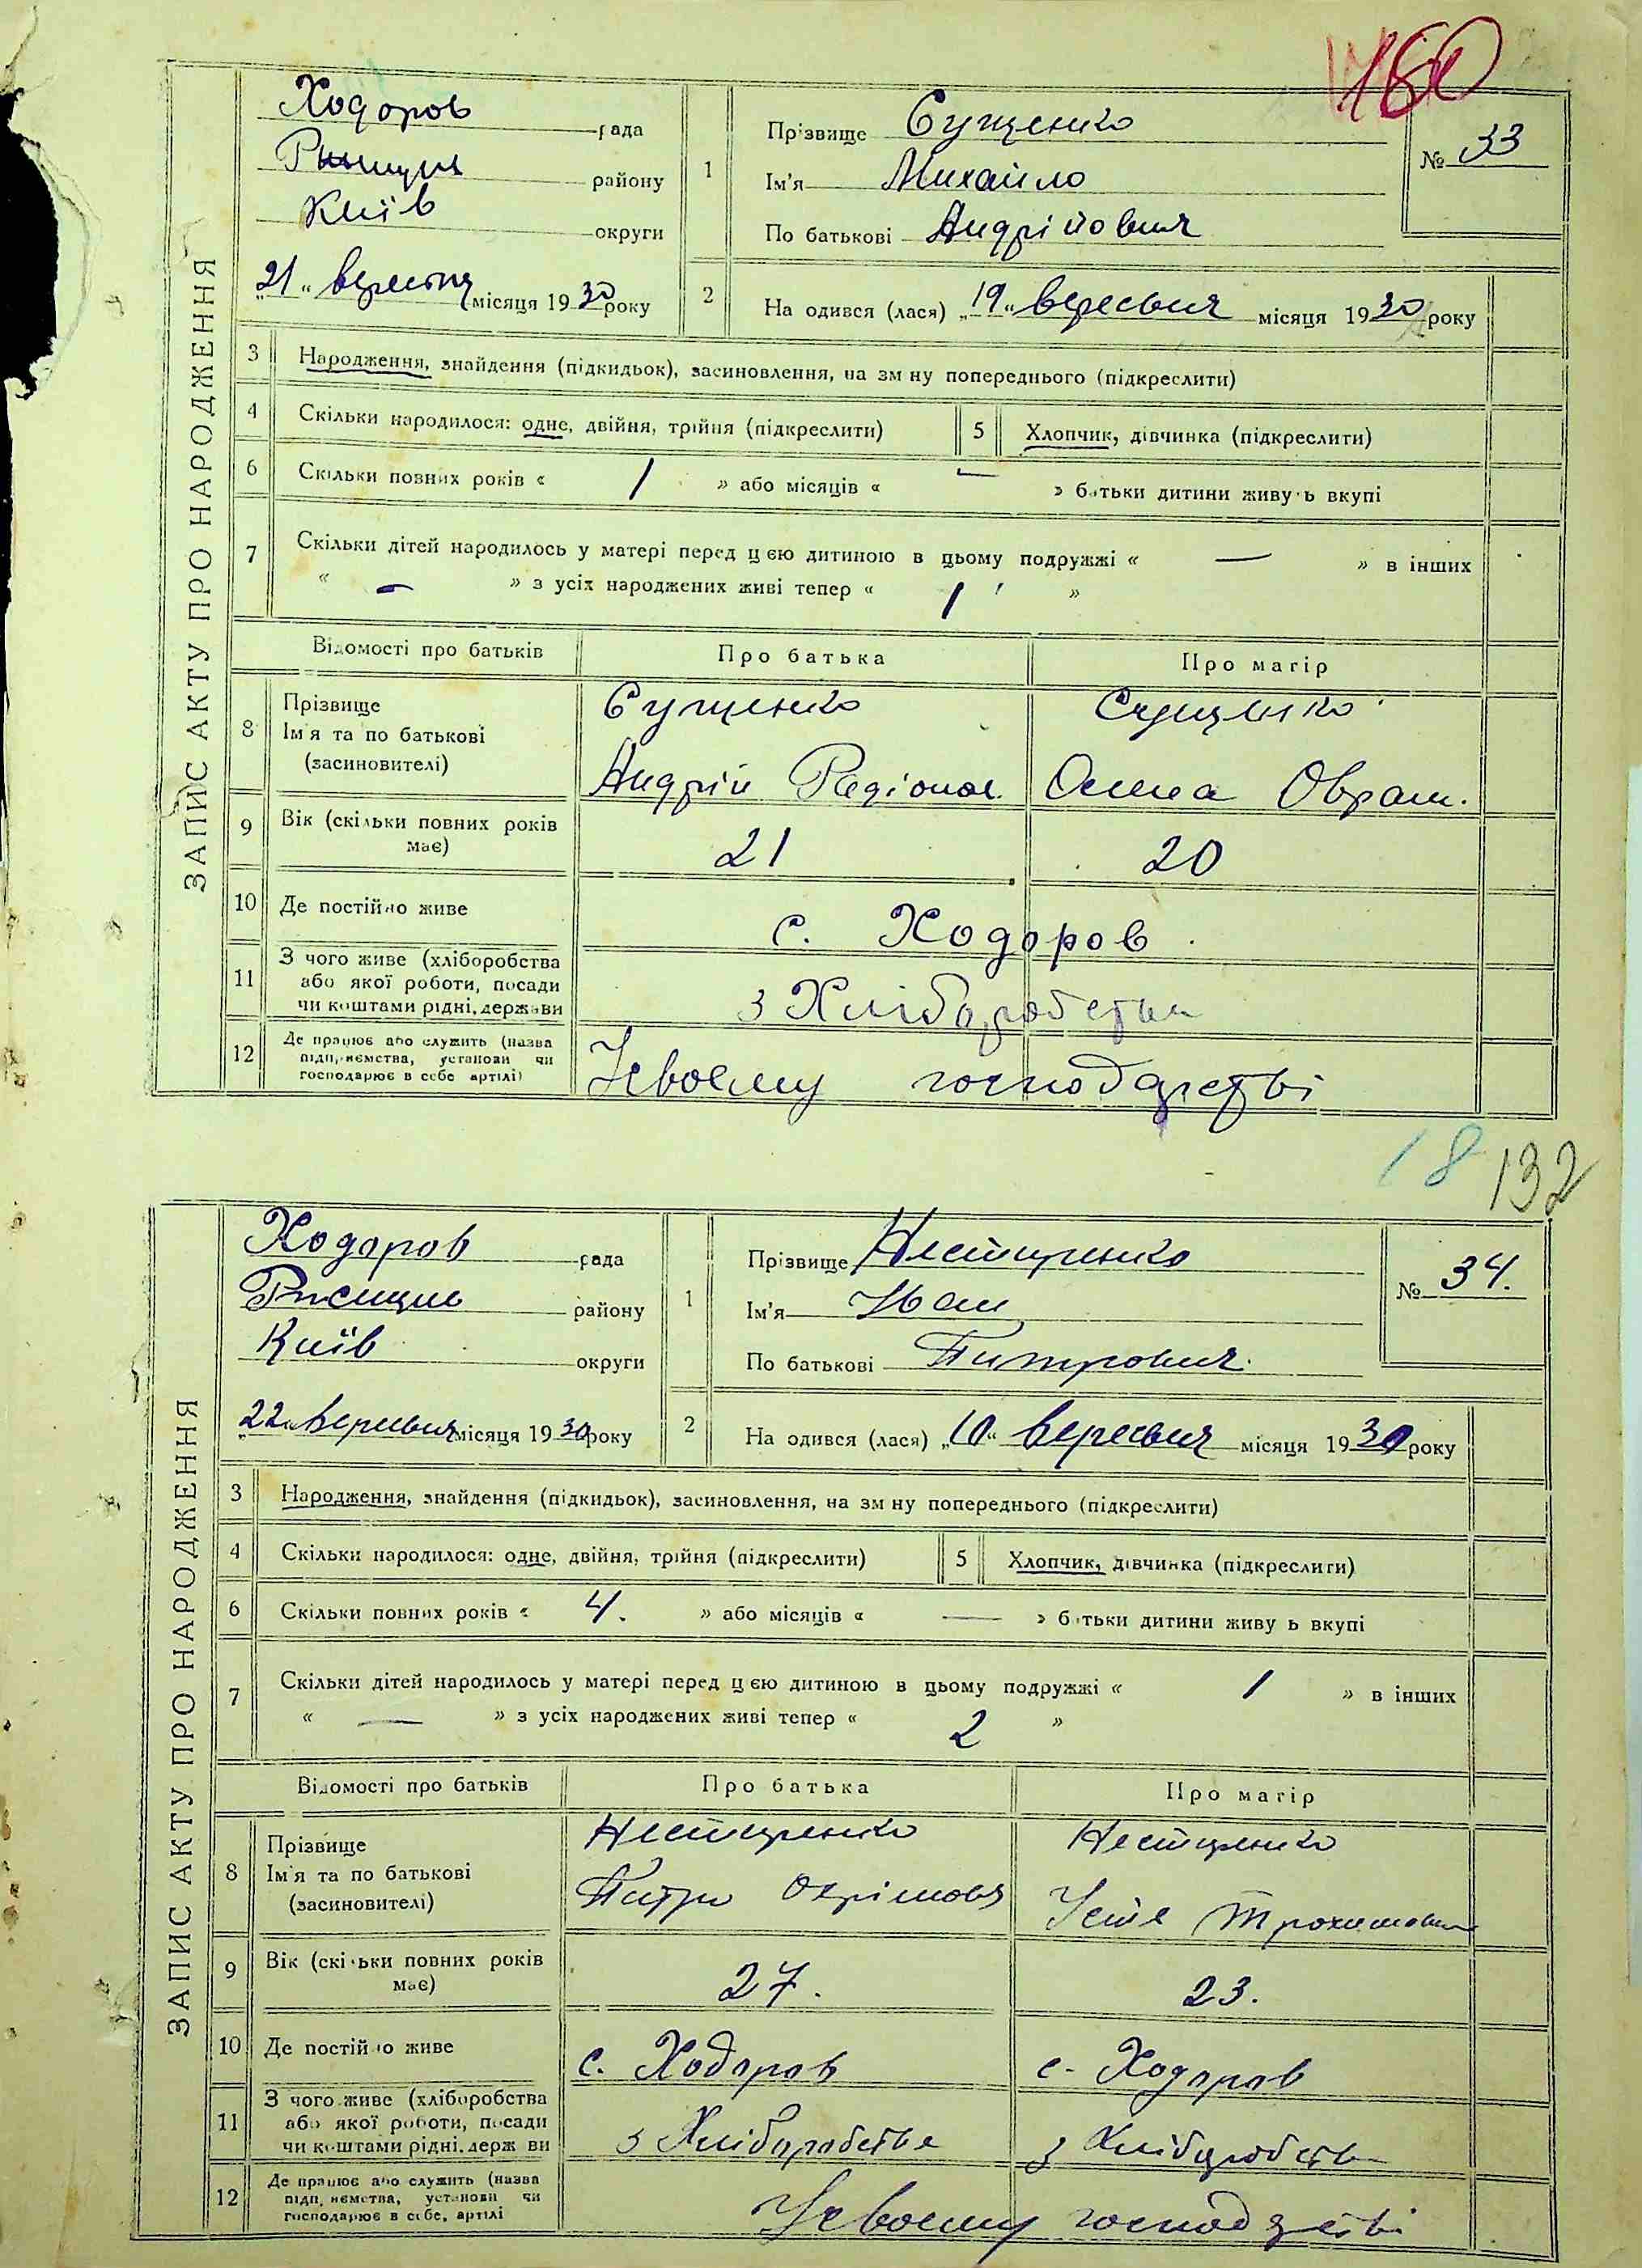 160
ЗАПИС АКТУ ПРО НАРОДЖЕННЯ
Ходоров рада
району
Київ округи
„21“ вересня місяця 1930 року
1
Прізвище Сущенко
Ім'я Михайло
По батькові Андрійович
№ 33
2
На одився (лася) „19“ вересня місяця 1930 року
3 Народження, знайдення (підкидьок), засиновлення, на зм ну попереднього (підкреслити)
4 Скільки народилося: одне, двійня, трійня (підкреслити) 5 Хлопчик, дівчинка (підкреслити)
6 Скільки повних років « 1 » або місяців « — » батьки дитини живу ь вкупі
7 Скільки дітей народилось у матері перед цією дитиною в цьому подружжі « — » в інших
« — » з усіх народжених живі тепер « 1 »
Відомості про батьків Про батька Про матір
8 Прізвище Ім'я та по батькові (засиновителі)
Сущенко Сущенко
Андрій Родіонов. Олена Оврам.
9 Вік (скільки повних років має) 21 20
10 Де постійно живе с. Ходоров
11 З чого живе (хліборобства або якої роботи, посади чи коштами рідні, держави
з Хліборобства
12 Де працює або служить (назва підприємства, установи чи господарює в себе артілі)
Усвоєму господарстві
18 132
ЗАПИС АКТУ ПРО НАРОДЖЕННЯ
Ходоров рада
району
Київ округи
22 вересня місяця 1930 року
1
Прізвище Нестеренко
Ім'я Иван
По батькові Питрович
№ 34.
2
На одився (лася) „10“ вересня місяця 1930 року
3 Народження, знайдення (підкидьок), засиновлення, на зм ну попереднього (підкреслити)
4 Скільки народилося: одне, двійня, трійня (підкреслити) 5 Хлопчик, дівчинка (підкреслити)
6 Скільки повних років « 4. » або місяців « — » батьки дитини живу ь вкупі
7 Скільки дітей народилось у матері перед цією дитиною в цьому подружжі « 1 » в інших
« — » з усіх народжених живі тепер « 2 »
Відомості про батьків Про батька Про матір
8 Прізвище Ім'я та по батькові (засиновителі)
Нестеренко Нестеренко
Питро Охрімов Устя Трохимовна
9 Вік (скільки повних років має) 27. 23.
10 Де постійно живе с. Ходоров с. Ходоров
11 З чого живе (хліборобства або якої роботи, посади чи коштами рідні, держ ви
з Хліборобства з Хліборобства
12 Де працює або служить (назва підприємства, установи чи господарює в себе, артілі
Усвоєму господарстві